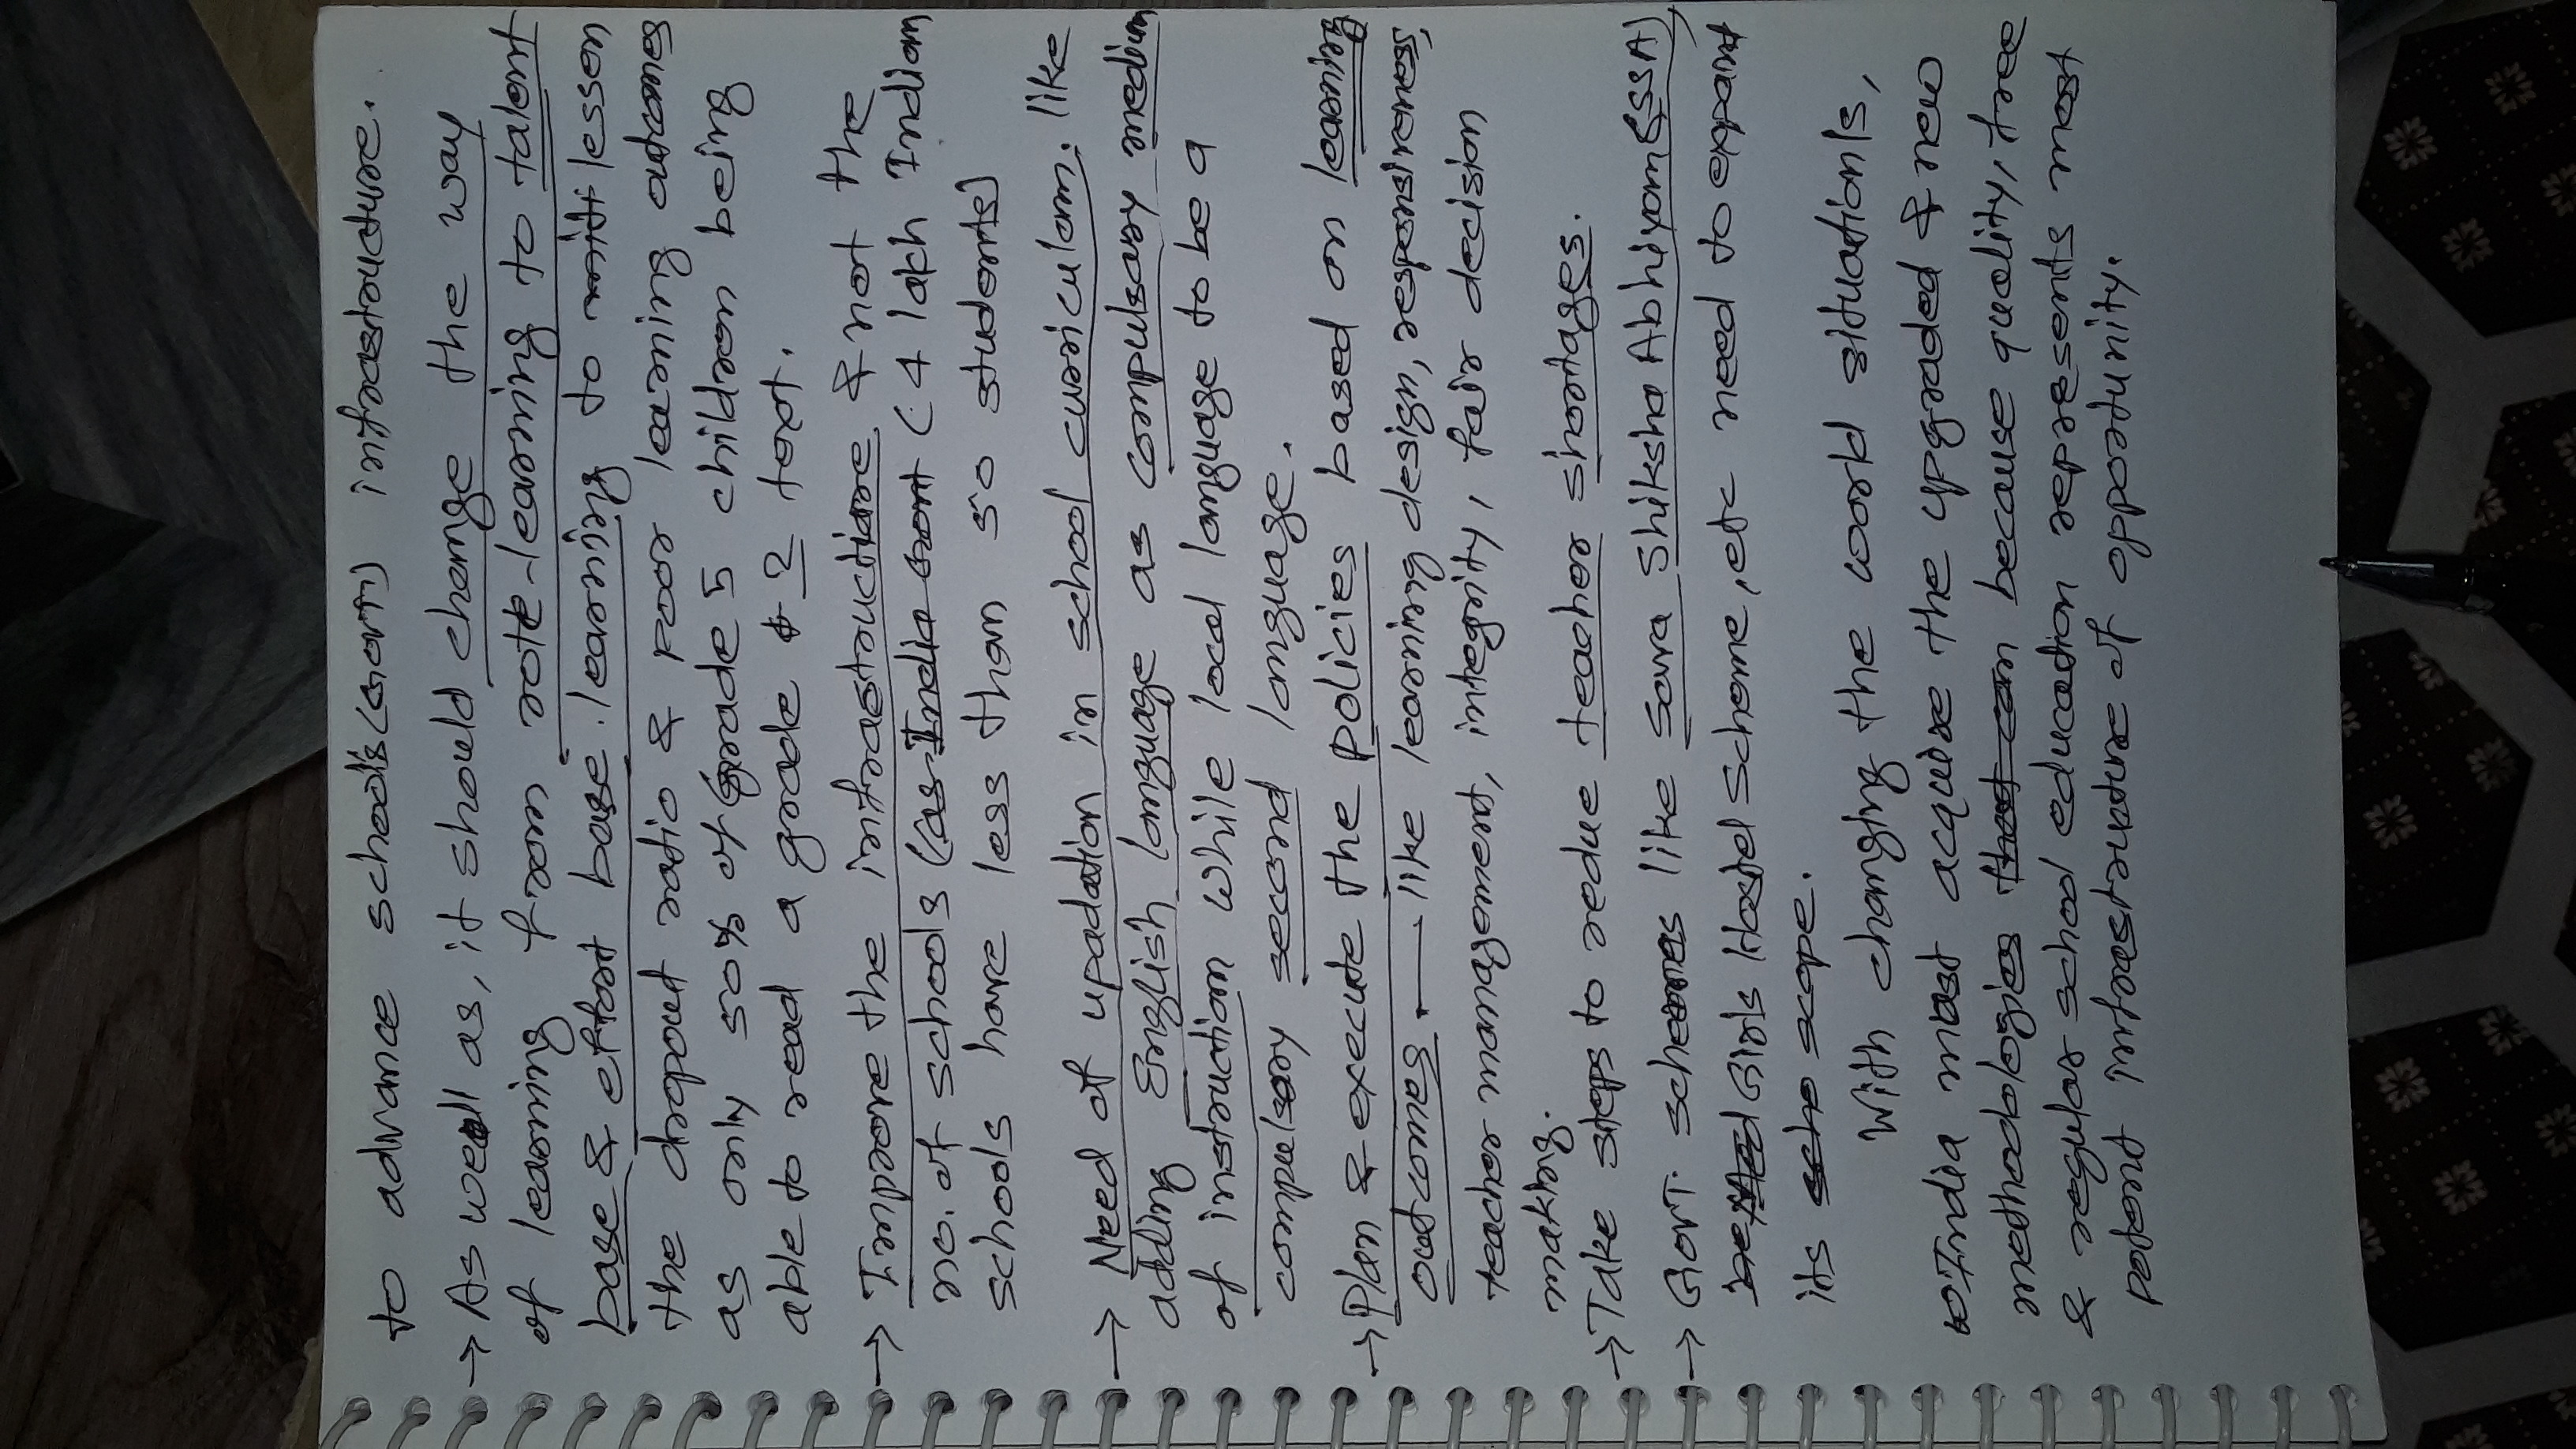 to advance schools (Govt) infrastructure.
→ As well as, it should change the way
of learning from rote-learning to talent
base & effort base learning to mitti lessen
the dropout ratio & poor learning outcomes
as only 50% of Grade 5 children being
able to read a grade 2 text.
→ Improve the infrastructure & not the
no. of schools (as India Govt (4 lakh Indian
schools have less than 50 students)
→ Need of upadation in school curriculam. like
adding English language as compulsary medium
of instruction while local language to be a
compulsary second language.
→ Plan & execute the policies based on learning
outcomes. — like learning design, responsiveness,
teacher management, integrity, fair decision
making.
→ Take steps to redue teacher shortages.
→ Govt. schemes like Sarva Shiksha Abhiyan (SSA)
Girls Hostel scheme, etc need to expand
its sche scope.
With changing the world situations,
India must acquire the upgraded & new
methodologies that can because quality, free
& regular school education represents most
potent infrastructure of opportunity.